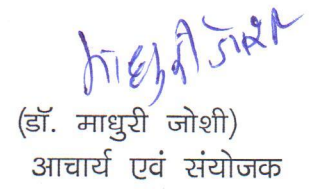 माधुरी जोशी
(डॉ. माधुरी जोशी)
आचार्य एवं संयोजक